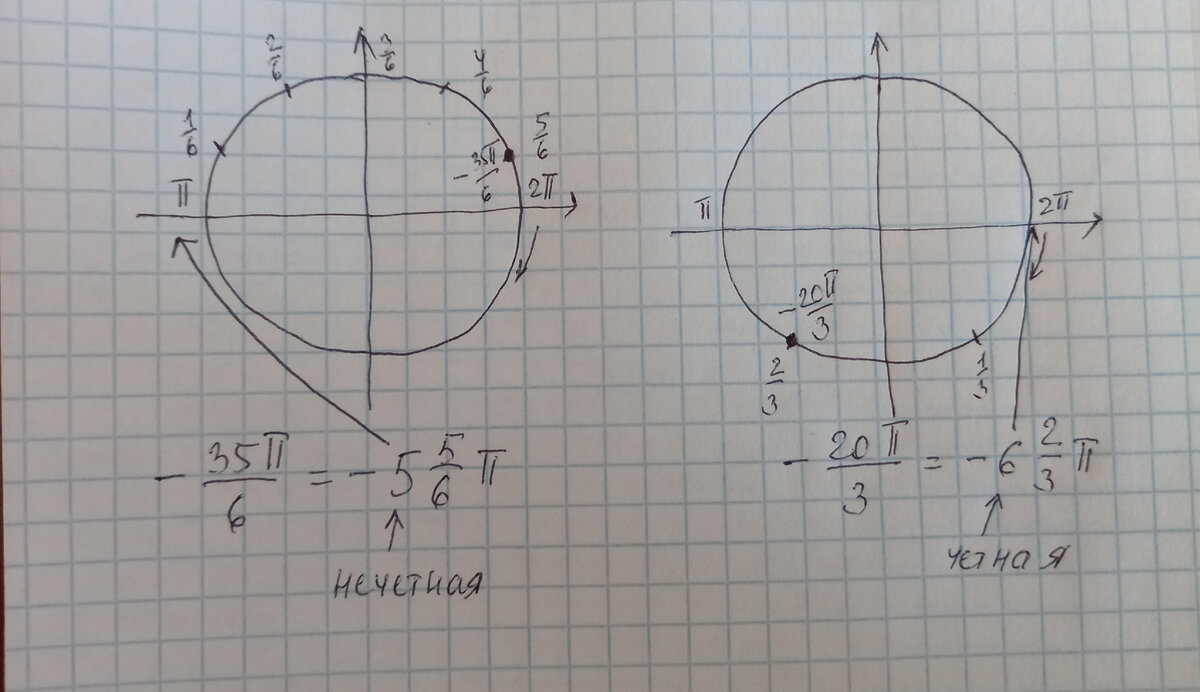 2/6 3/6 4/6
1/6 5/6
-35π/6
π 2π
-35π/6 = -5 5/6 π
нечетная
π 2π
-20π/3
2/3 1/3
-20π/3 = -6 2/3 π
четная